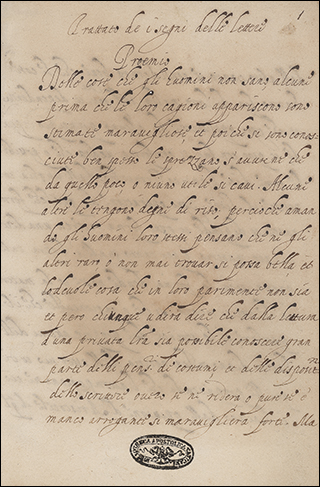 1
Trattato de i segni delle lettere
Proemio
Delle cose che gli huomini non sano alcune
prima che le loro cagioni appariscono sono
stimate maravigliose, et poi che si sono conos=
ciute ben spesso le sprezzano s'avviene che
da quelle poco o niuno utile si cavi. Alcune
altre le tengono degni di riso, percioche aman
do gli huomini loro stessi pensano che ne gli
altri raro o non mai trovar si possa bella et
lodevole cosa che in loro parimente non sia
et pero chiunque udira dire che dalla lettura
d'una privata lra sia possibile conoscere gran
parte delli pens.ti de costumi et delle disposit.ni
dello scrivere overo se ne ridera o pure se è
manco arrogante si maravigliera forte. Ma
BIBLIOTHECA APOSTOLICA VATICANA